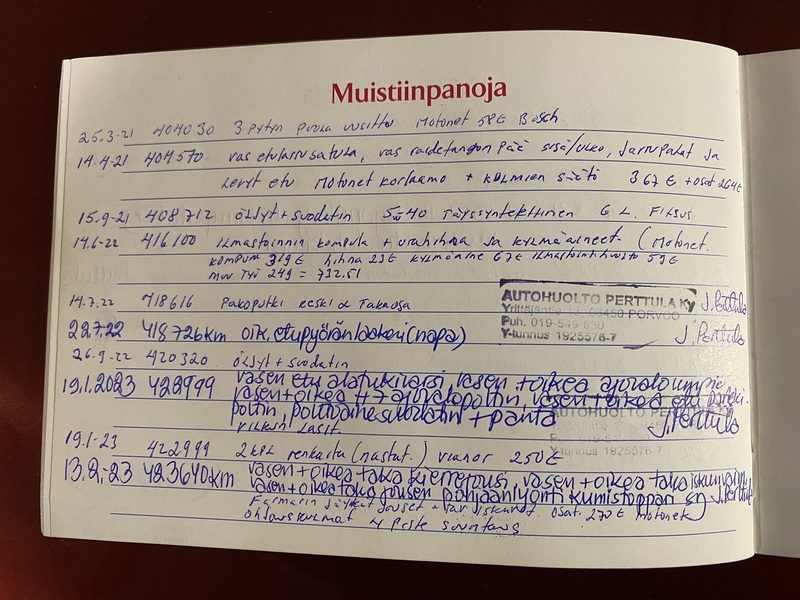 Muistiinpanoja
25.3-21 404030 3 pytyn puola uusittu Motonet 58€ Bosch
14.4-21 404570 vas etujarrusatula, vas raidetangon pää sisä/ulko, Jarrupalat ja
levyt etu Motonet korjaamo + kulmien säätö 367€ + osat 264€
15.9-21 408712 öljyt + suodatin 5W40 täyssyntekttinen 6 L.
14.6-22 416100 Ilmastoinnin kompura + urahihna ja kylmäaineet. (Motonet.
kompura 319€ hihna 23€ kylmäaine 67€ ilmastointihuolto 59€
muu työ 249 = 732.51
14.7.22 418616 Pakoputki keski & Takaosa
AUTOHUOLTO PERTTULA Ky J. Perttula
Yrittäjäntie 13, 06450 PORVOO
Puh. 019-549 830
Y-tunnus 1925576-7
22.7.22 418726km oik. etupyöränlaakeri (napa) J. Perttula
26.9-22 420320 öljyt + suodatin
19.1.2023 422999 vasen etu alatukivarsi, vasen + oikea ajovaloumpio
vasen + oikea H7 ajovalopolttin, vasen + oikea etu parkki.
polttin, polttoainesuodatin + panta J. Perttula
AUTOHUOLTO PERTTULA Ky
Y-tunnus 1925576-7
19.1-23 422999 2 kpl renkaita (nastat.) vianor 250€
13.2.-23 423640km vasen + oikea taka kierrejousi, vasen + oikea takaiskunvaim
vasen + oikea taka jousen pohjaanlyönti kumistoppari sn J. Perttula
Farmarin jäykät jouset + iskarit. osat. 270€ Motonet
ohjauskulmat 4 pyörä suuntaus